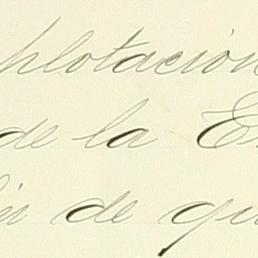 plotación
de la E
de qu